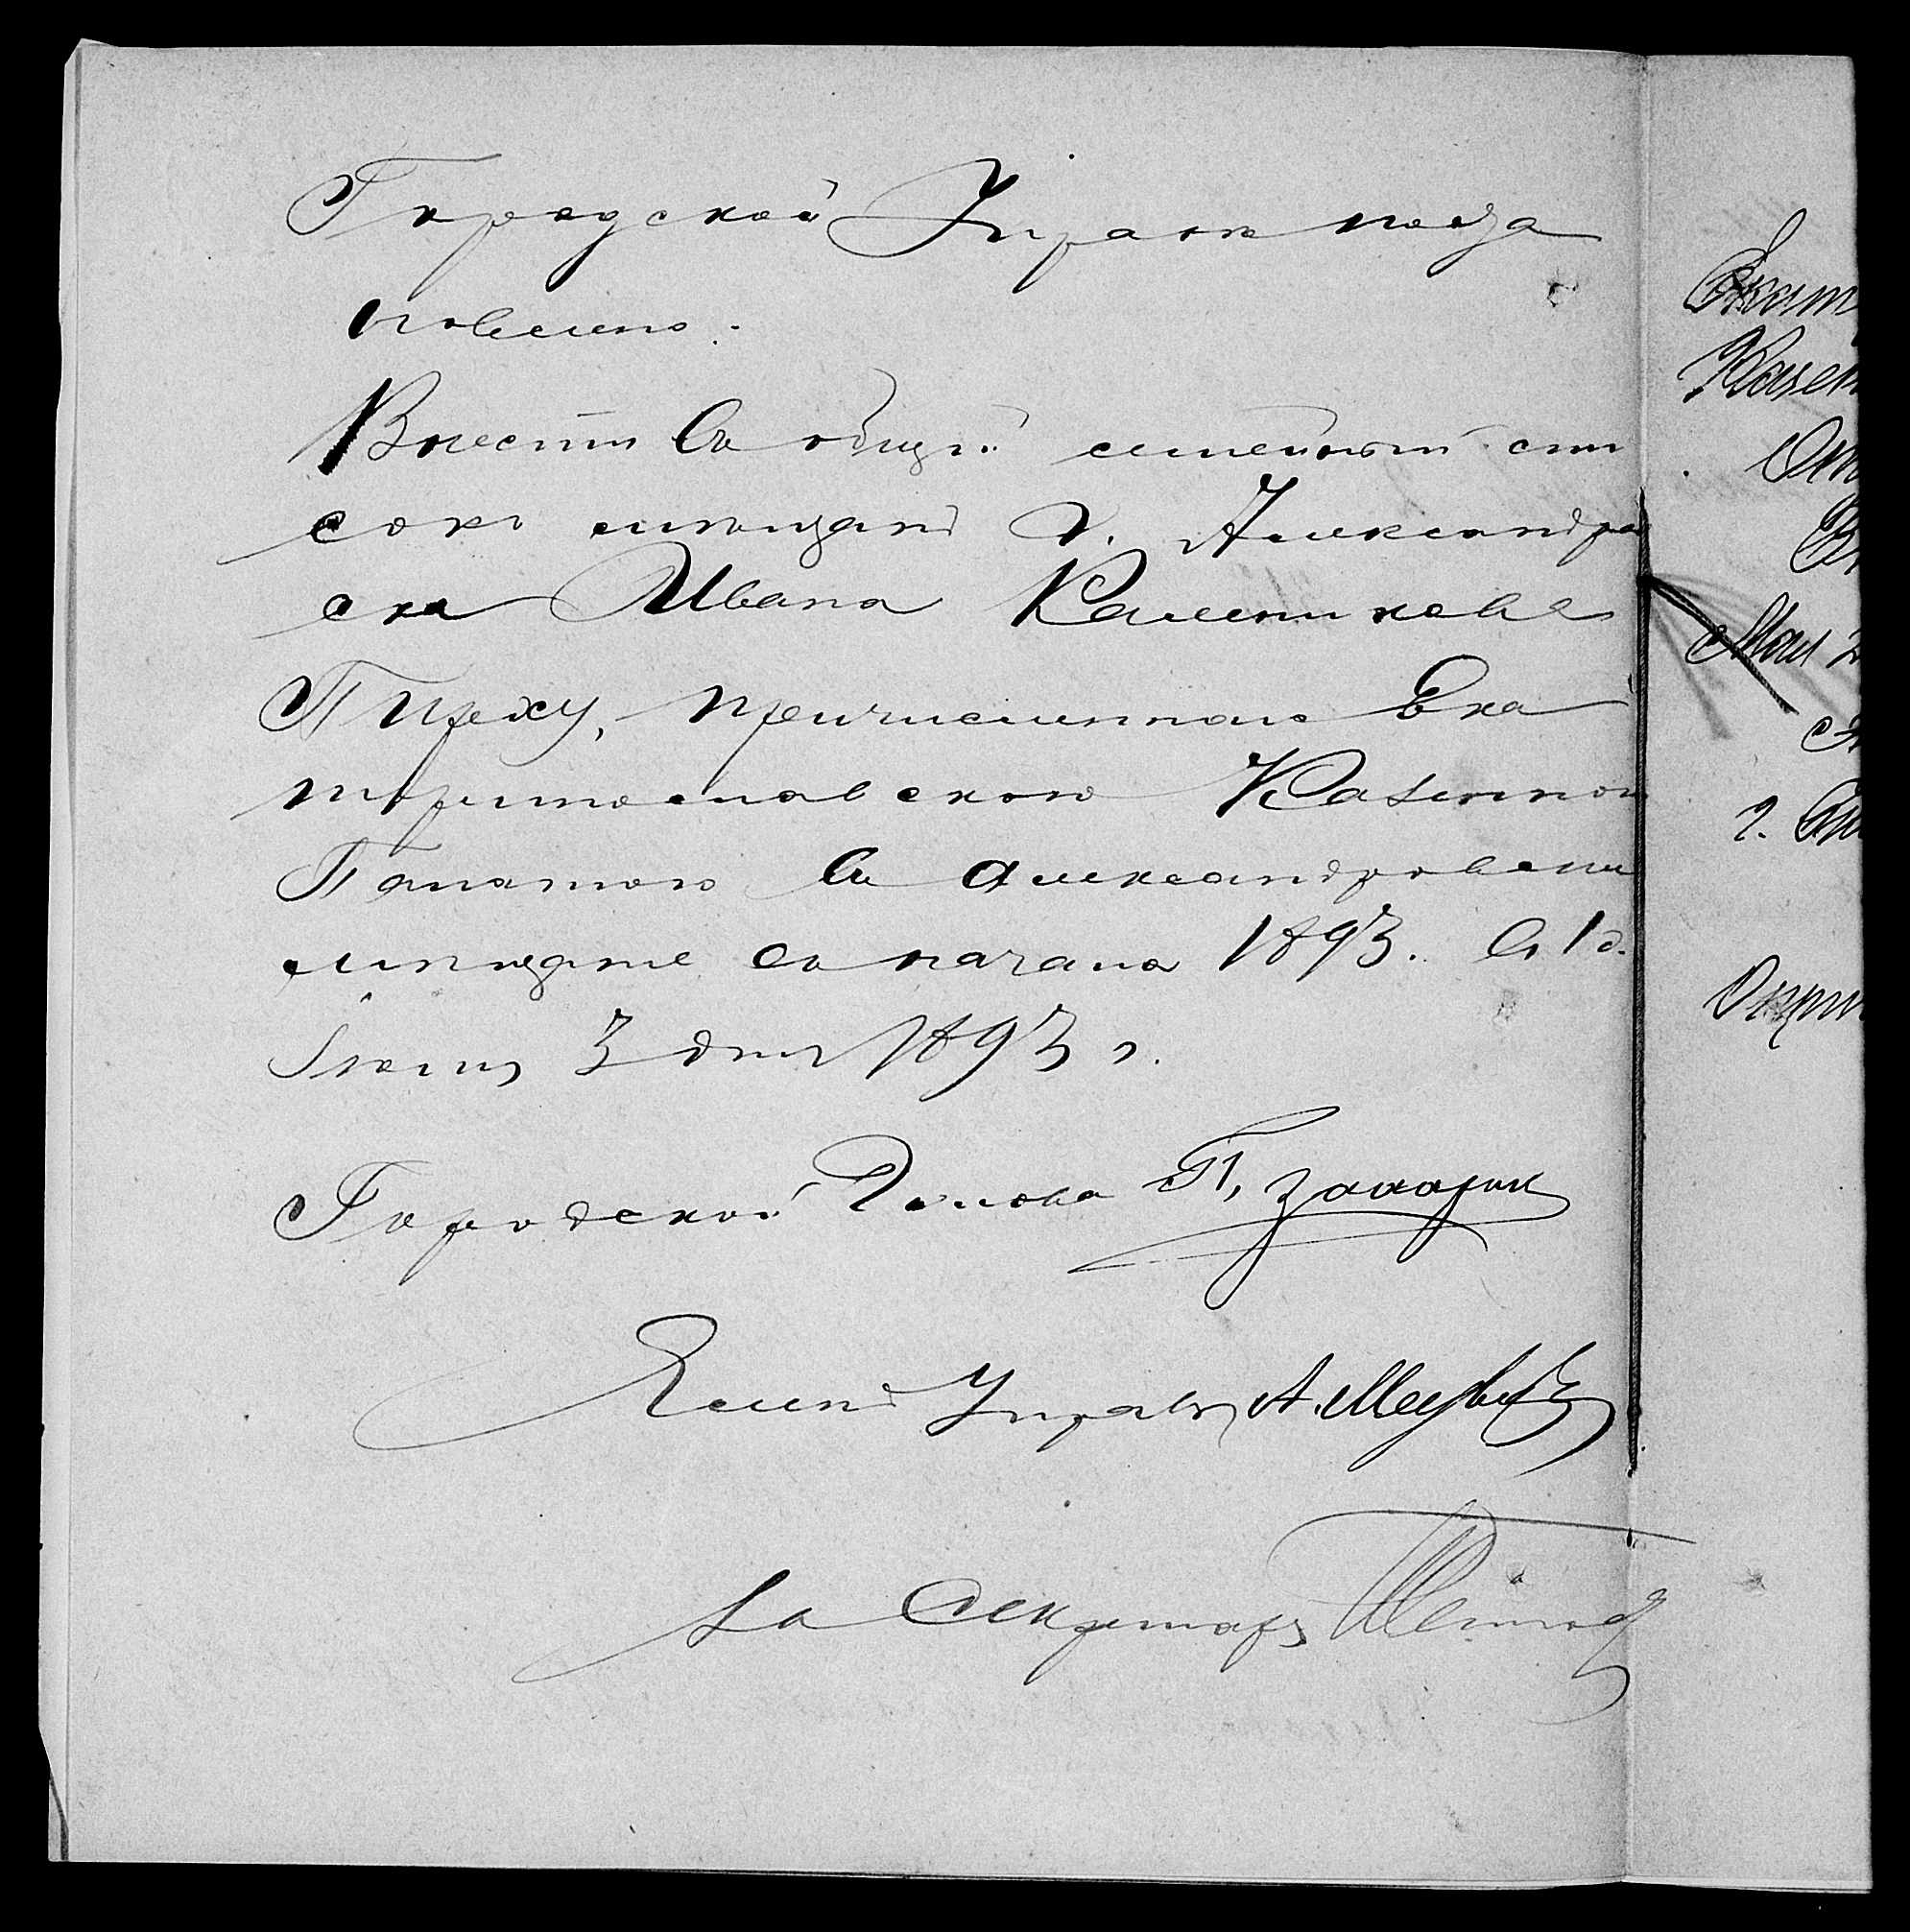 Городской Управы поста
новлено:
Внести въ общій семейный спи
сокъ мѣщанъ г. Александров
ска Ивана Каленикова
Пирху, причисленнаго Ека
теринославскою Казенною
Палатою въ Александровскіе
мѣщане съ начала 1893. Въ 1 д.
Іюня 3 дня 1893 г.
Городской Голова П. Захарин
Членъ Управы А. Медвед
За Секретаря
Екат
Казен
Мая 2
г.